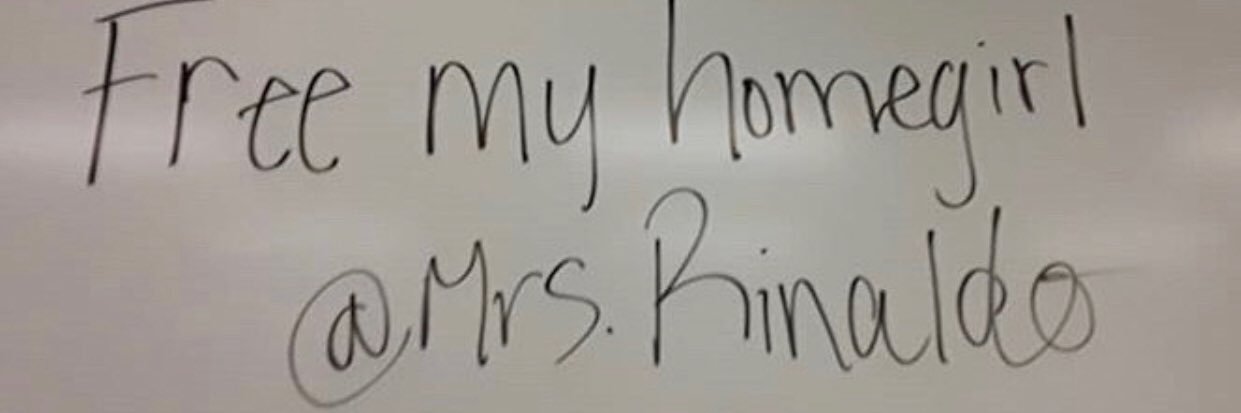 Free my homegirl
@Mrs. Rinaldo